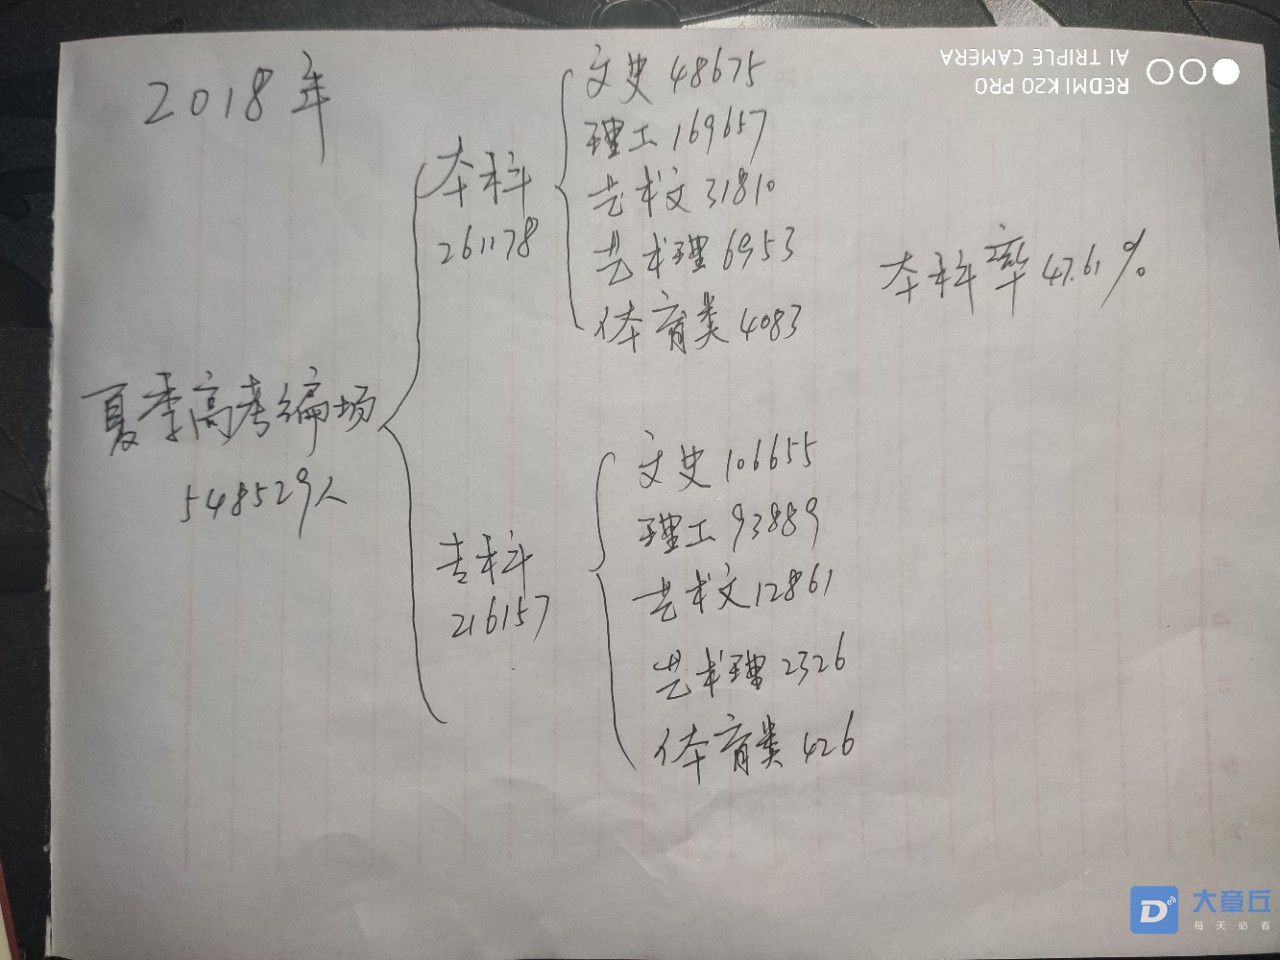 2018年
夏季高考编场
548529人
本科
261178
文史 48675
理工 169657
艺术文 31810
艺术理 6953
体育类 4083
本科率 47.61%
专科
216157
文史 106655
理工 93889
艺术文 12861
艺术理 2326
体育类 426
REDMI K20 PRO
AI TRIPLE CAMERA
大章丘
每天必看